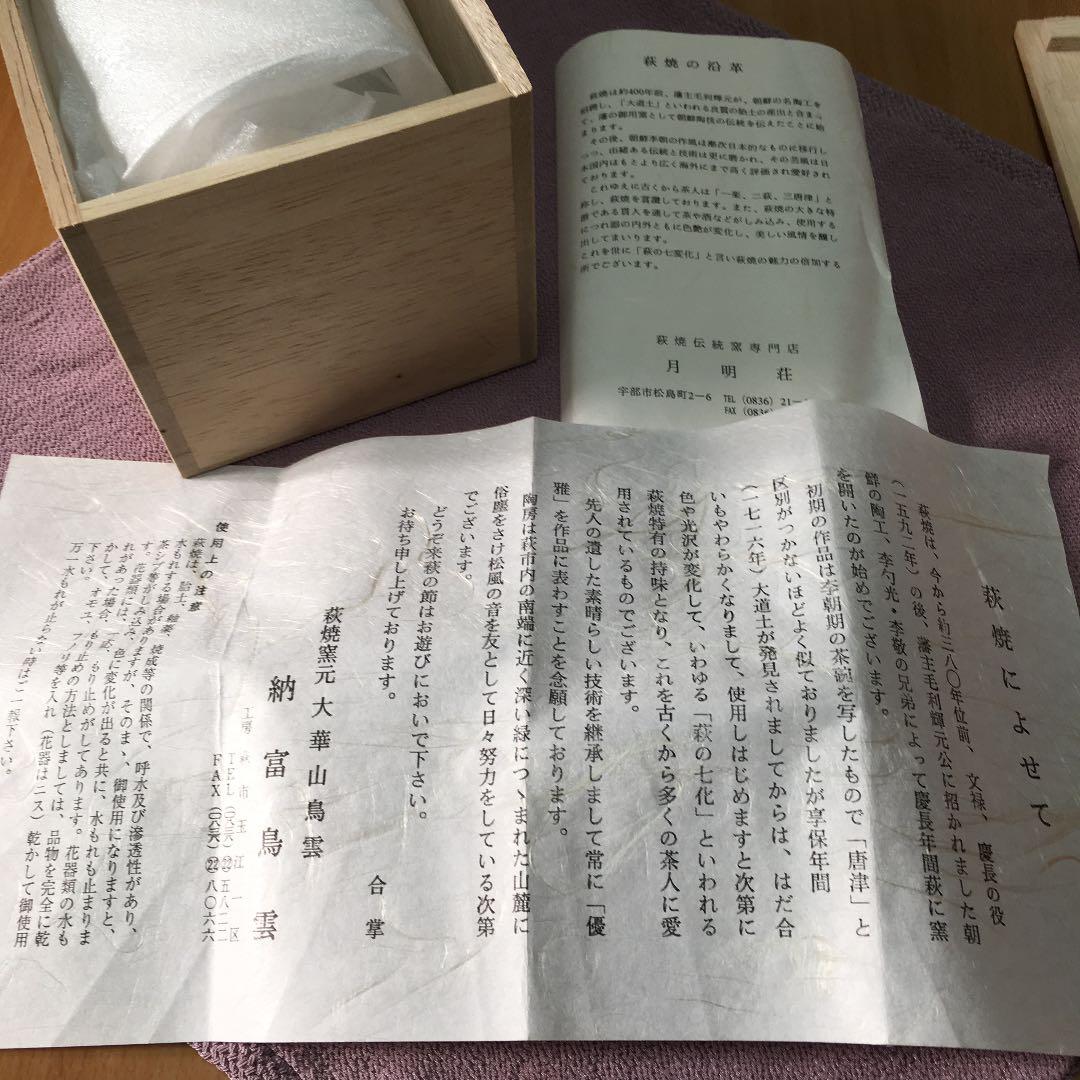 萩焼の沿革
萩焼は約400年前、藩主毛利輝元が、朝鮮の名陶工を
招聘し、「大道土」といわれる良質の胎土の産出と合まっ
て、藩の御用窯として朝鮮陶技の伝統を伝えたことに始
まります。
その後、朝鮮李朝の作風は漸次日本的なものに移行し
つつ、由緒ある伝統と技術は更に磨かれ、その芸風は日
本国内はもとより広く海外にまで高く評価され愛好され
ております。
これゆえに古くから茶人は「一楽、二萩、三唐津」と
称し、萩焼を賞讃しております。また、萩焼の大きな特
徴である貫入を通して茶や酒などがしみ込み、使用する
につれ器の内外ともに色艶が変化し、美しい風情を醸し
出してまいります。
これを世に「萩の七変化」と言い萩焼の魅力の倍加する
所でございます。
萩焼伝統窯専門店
月明荘
宇部市松島町2−6 TEL (0836) 21−
FAX (0836)
萩焼によせて
萩焼は、今から約三八〇年位前、文禄、慶長の役
(一五九二年)の後、藩主毛利輝元公に招かれました朝
鮮の陶工、李勺光・李敬の兄弟によって慶長年間萩に窯
を開いたのが始めでございます。
初期の作品は李朝期の茶碗を写したもので「唐津」と
区別がつかないほどよく似ておりましたが享保年間
(一七一六年)大道土が発見されましてからは、はだ合
いもやわらかくなりまして、使用しはじめますと次第に
色や光沢が変化して、いわゆる「萩の七化」といわれる
萩焼特有の持味となり、これを古くから多くの茶人に愛
用されているものでございます。
先人の遺した素晴らしい技術を継承しまして常に「優
雅」を作品に表わすことを念願しております。
陶房は萩市内の南端に近く深い緑につゝまれた山麓に
俗塵をさけ松風の音を友として日々努力をしている次第
でございます。
どうぞ来萩の節はお遊びにおいで下さい。
お待ち申し上げております。
合掌
萩焼窯元 大華山鳥雲
納富鳥雲
工房 萩市玉江一区
TEL (〇八三八) ㉒五八二二
FAX (〇八三八) ㉒八〇六六
使用上の注意
萩焼は、胎土、釉薬、焼成等の関係で、呼水及び滲透性があり、
水もれする場合がありますが、そのまゝ、御使用になりますと、
茶シブ等がしみ込み、色に変化が出ると共に、水もれも止まりま
す。花器類には、一応、もり止めがしてあります。花器類の水も
れがあった場合、もり止めの方法としましては、品物を完全に乾
かして、オモユ、フノリ等を入れ(花器はニス)乾かして御使用
下さい。
万一水もれが止らない時はご一報下さい。